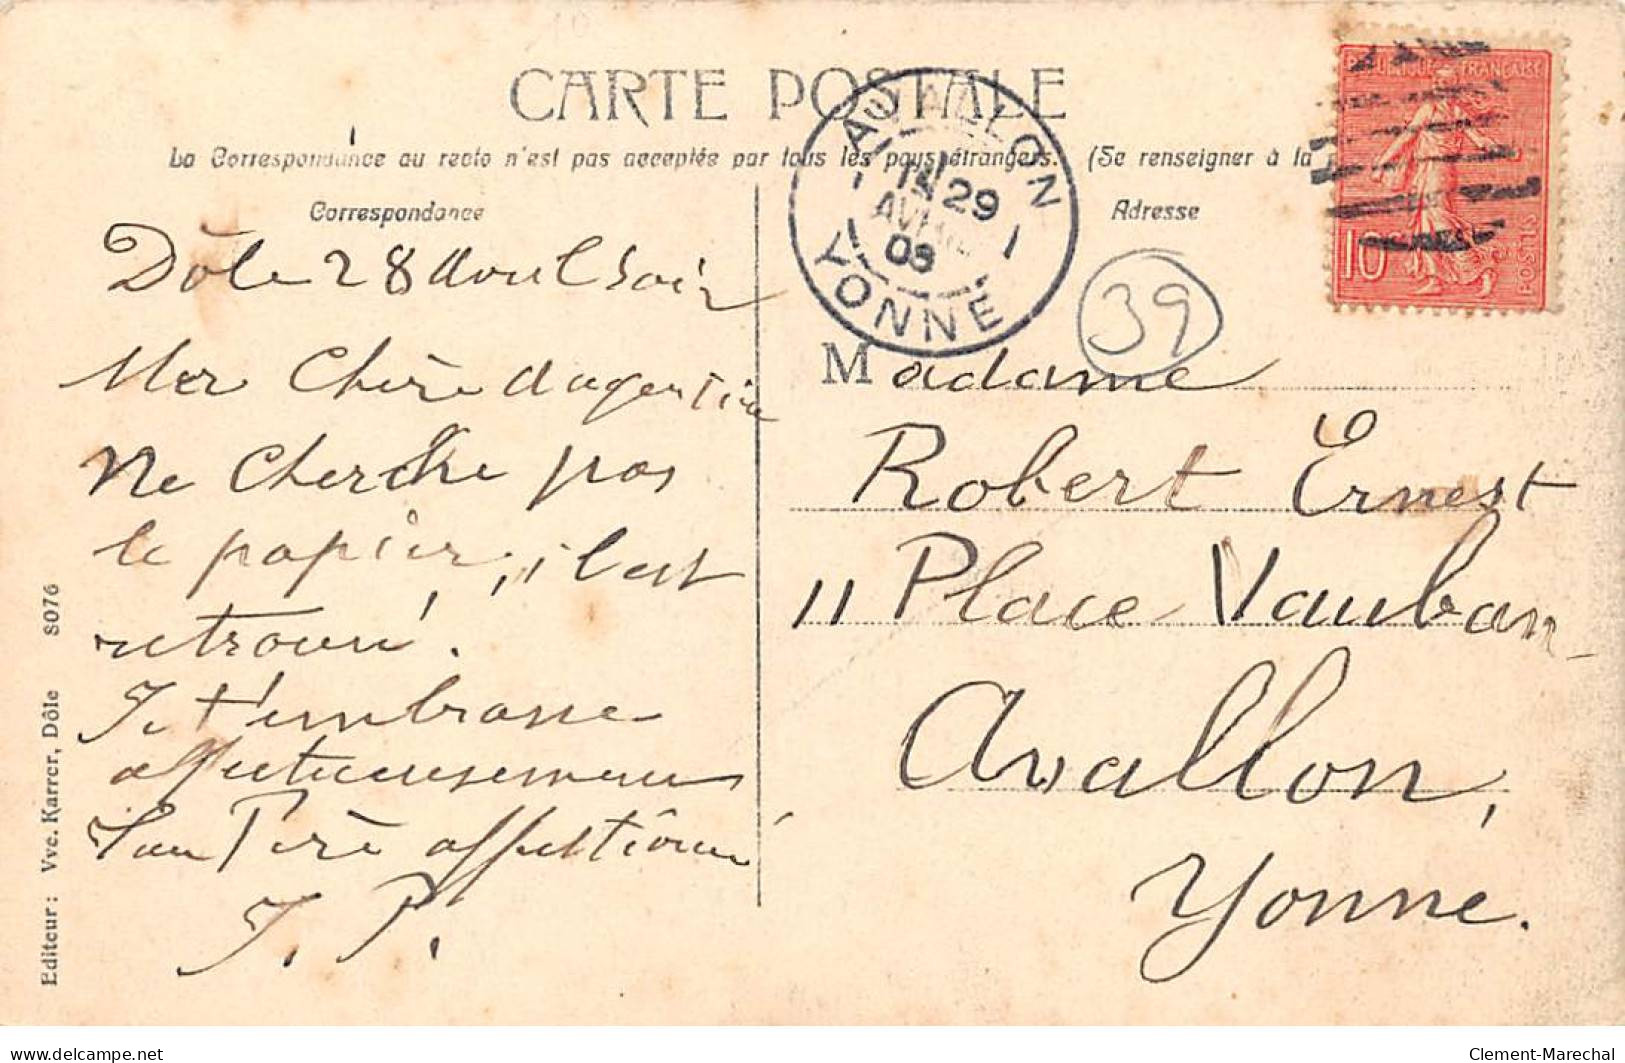 CARTE POSTALE
La Correspondance au recto n'est pas acceptée par tous les pays étrangers. (Se renseigner à la
Correspondance
Adresse
AVALLON
29
AVRIL
08
YONNE
RÉPUBLIQUE FRANÇAISE
10
POSTES
39
Dôle 28 Avril Soir
Ma Chère
Ne Cherche pas
le papier, il est
retrouvé.
Je t'embrasse
affectueusement
Ton Père affectionné
J. P.
Madame
Robert Ernest
11 Place Vauban
Avallon,
Yonne.
Editeur: Vve. Karrer, Dôle 8076
delcampe.net
Clement-Marechal